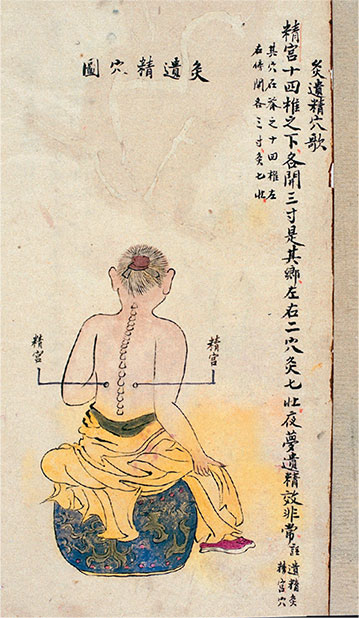 灸遺精穴歌
精宮十四椎之下各開三寸是其鄉左右二穴灸七壮夜夢遺精效非常註遺精灸
精宮穴
其穴在脊之十四椎左
右傍開各三寸灸七壮
灸遺精穴圖
精宮
精宮